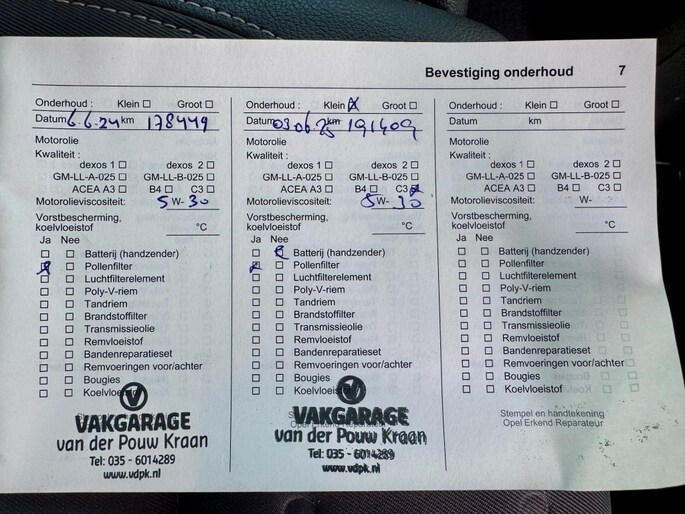 Bevestiging onderhoud 7
Onderhoud : Klein ☐ Groot ☐
Datum 6.6.24 km 178449
Motorolie
Kwaliteit :
dexos 1 ☐ dexos 2 ☐
GM-LL-A-025 ☐ GM-LL-B-025 ☐
ACEA A3 ☐ B4 ☐ C3 ☐
Motorolieviscositeit: 5 W- 30
Vorstbescherming,
koelvloeistof °C
Ja Nee
Batterij (handzender)
Pollenfilter
Luchtfilterelement
Poly-V-riem
Tandriem
Brandstoffilter
Transmissieolie
Remvloeistof
Bandenreparatieset
Remvoeringen voor/achter
Bougies
Koelvloei
VAKGARAGE
van der Pouw Kraan
Tel: 035 - 6014289
www.vdpk.nl
Onderhoud : Klein ☒ Groot ☐
Datum 03.06.25 km 191409
Motorolie
Kwaliteit :
dexos 1 ☐ dexos 2 ☐
GM-LL-A-025 ☐ GM-LL-B-025 ☐
ACEA A3 ☐ B4 ☐ C3 ☒
Motorolieviscositeit: 5 W- 30
Vorstbescherming,
koelvloeistof °C
Ja Nee
Batterij (handzender)
Pollenfilter
Luchtfilterelement
Poly-V-riem
Tandriem
Brandstoffilter
Transmissieolie
Remvloeistof
Bandenreparatieset
Remvoeringen voor/achter
Bougies
Koelvloei
VAKGARAGE
van der Pouw Kraan
Tel: 035 - 6014289
www.vdpk.nl
Onderhoud : Klein ☐ Groot ☐
Datum km
Motorolie
Kwaliteit :
dexos 1 ☐ dexos 2 ☐
GM-LL-A-025 ☐ GM-LL-B-025 ☐
ACEA A3 ☐ B4 ☐ C3 ☐
Motorolieviscositeit: W-
Vorstbescherming,
koelvloeistof °C
Ja Nee
Batterij (handzender)
Pollenfilter
Luchtfilterelement
Poly-V-riem
Tandriem
Brandstoffilter
Transmissieolie
Remvloeistof
Bandenreparatieset
Remvoeringen voor/achter
Bougies
Koelvloeistof
Stempel en handtekening
Opel Erkend Reparateur